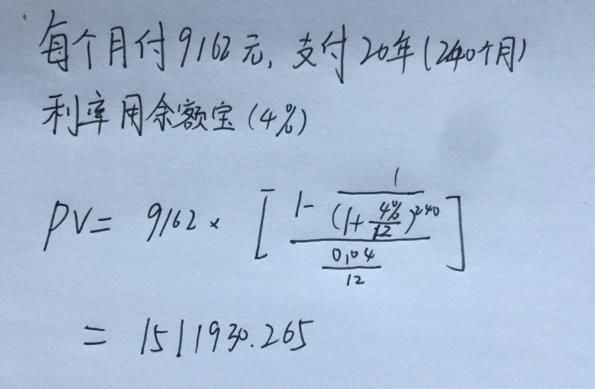 每个月付9162元,支付20年(240个月)
利率用余额宝(4%)
PV= 9162 × [ (1 - 1/(1+4%/12)^240) / (0.04/12) ]
= 1511930.265